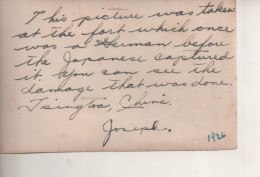 This picture was taken
at the fort which once
was a German before
the Japanese captured
it. You can see the
damage that was done.
Tsingtoa, China.
Joseph.
1926